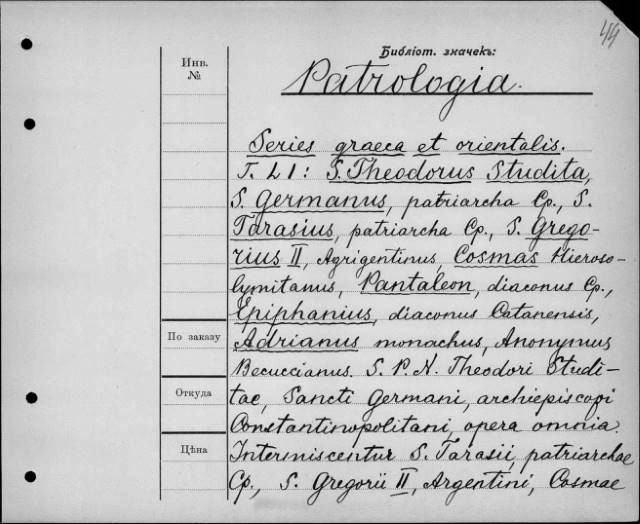 44
Библіот. значекъ:
Инв.
№
Patrologia.
Series graeca et orientalis.
T. LI: S. Theodorus Studita,
S. Germanus, patriarcha Cp., S.
Tarasius, patriarcha Cp., S. Grego-
rius II, Agrigentinus, Cosmas Hieroso-
lymitanus, Pantaleon, diaconus Cp.,
Epiphanius, diaconus Catanensis,
По заказу
Adrianus monachus, Anonymus
Becuccianus. S. P. N. Theodori Studi-
Откуда
tae, Sancti Germani, archiepiscopi
Constantinopolitani, opera omnia.
Цѣна
Intermiscentur S. Tarasii, patriarchae
Cp., S. Gregorii II, Argentini, Cosmae